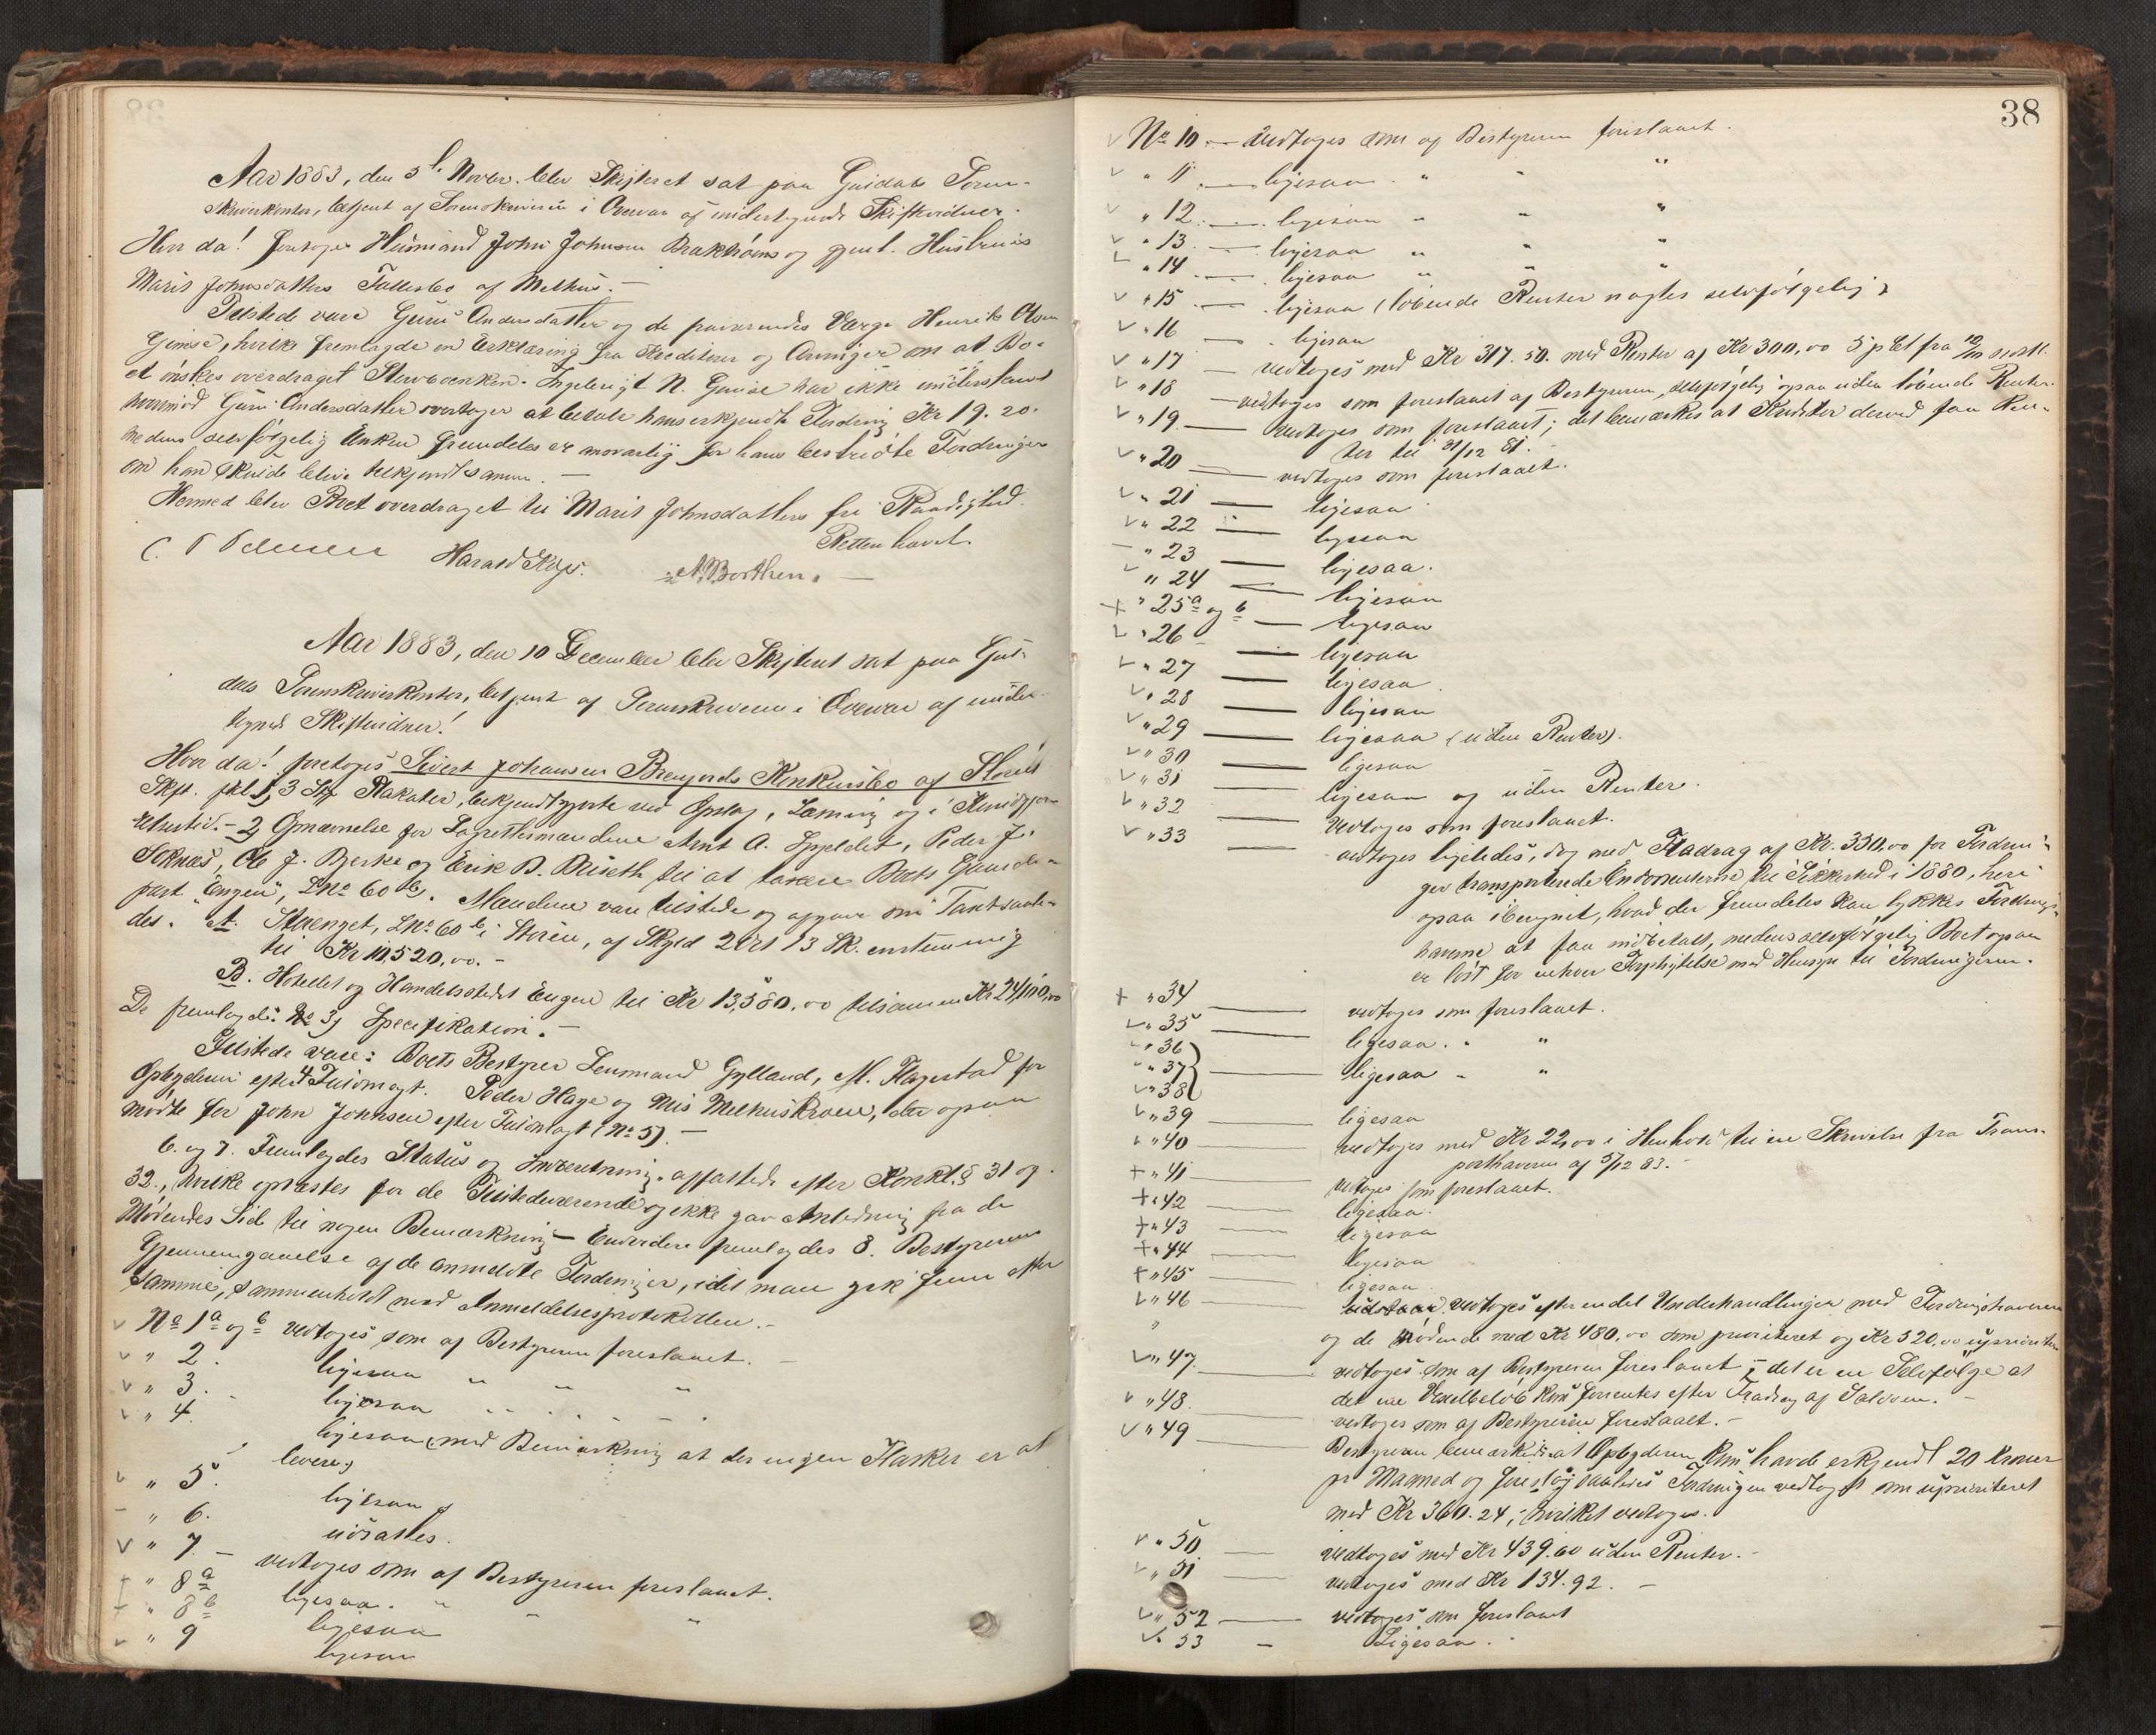 Aar 1883, den 3 Novbr. blev Skifteret sat paa Guldals Soren-
skriverkontor, betjent af Sorenskriveren i Overvær af undertegnede Skiftevidner.
Hvor da! foretoges Husmand John Johnsen Brakhrøms og gjenl. Hustrues
Marit Johnsdatters Fællesbo af Melhus. —
Tilstede vare Guru Andersdatter og de fraværendes Værge Henrik Olsen
Gimse, hvilke fremlagde en Erklæring fra Kreditorer og Arvinger om at Bo-
et ønskes overdraget Stervboenken. Ingebrigt N. Gimse har ikke underskrevet
hvorimod Guru Andersdatter overtager at betale hans erkjendte Fordring Kr 19.20.
medens selvfølgelig Enken fremdeles er ansvarlig for hans bestridte Fordringer
om han skulde blive tilkjendt samme. —
Hermed blev Boet overdraget til Marit Johnsdatters fri Raadighed.
Retten hævet.
Harald N. Borthen.
Aar 1883, den 10 December blev Skifteret sat paa Gul-
dals Sorenskriverkontor, betjent af Sorenskriveren i Overvær af under-
tegnede Skiftevidner!
Hvor da! foretoges Sivert Johansen Brenjords Konkursbo af Støren
Skft. fbl. 1, 3 Plakater, bekjendtgjorte ved Opslag, Læsning og i Kundgjør-
elsestid. — 2, Opnævnelse for Lagrettesmændene Arnt A. , Peder J.
Soknæs, Ole J. Bjerke og Erik B. til at taxere Boets Gaarde-
part "Engen", LNo 60 b. Mændene vare tilstede og afgave sin Taxt saale-
des. A. , LNo 60 b i Støren, af Skyld 2 Ort 13 Sk. enstemmig
til Kr 10,520,00. —
B. Hotellet og Handelsstedet Engen til Kr 13,580.00 tilsammen Kr 24,100,00
De fremlagde No 3, Specifikation. —
Tilstede vare: Boets Bestyrer Lensmand Gylland, M. Flagestad for
Opbyderen efter 4 Fuldmagt. Peder Hage og Nils Melhuskroen, der ogsaa
mødte for John Johnsen efter Fuldmagt (No 5). —
6. og 7. Fremlagdes Status og Indberetning, affattede efter Konkl. § 31 og
32., hvilke oplæstes for de Tilstedeværende og ikke gav Anledning fra de
Mødendes Side til nogen Bemærkning — Endvidere fremlagdes 8. Bestyrerens
Gjennemgaaelse af de anmeldte Fordringer, idet man gik frem efter
samme, sammenholdt med Anmeldelsesprotokollen. —
No 1 a og b vedtoges som af Bestyreren foreslaaet. —
" 2. ligesaa " " "
" 3. ligesaa
" 4. ligesaa (med Bemærkning at der ingen Flasker er at
levere)
" 5. ligesaa
" 6. udsattes.
" 7. — vedtoges som af Bestyreren foreslaaet.
" 8 a ligesaa. " " "
" 8 b ligesaa
" 9 ligesaa
38
No 10. — vedtoges som af Bestyreren foreslaaet.
" 11. — ligesaa. " " "
" 12. — ligesaa " " "
" 13. — ligesaa " " "
" 14. — ligesaa " " "
" 15. — ligesaa (løbende Renter nægtes selvfølgelig)
" 16 — ligesaa
" 17 — vedtoges med Kr 317.50. med Renter af Kr 300,00 5 pCt fra
" 18 — vedtoges som foreslaaet af Bestyreren, selvfølgelig ogsaa uden løbende Renter.
" 19. — vedtoges som foreslaaet; det bemærkes at Kreditor derved faar Ren-
ter til 31/12 81.
" 20 — vedtoges som foreslaaet.
" 21 — ligesaa
" 22 — ligesaa
" 23 — ligesaa.
" 24 — ligesaa
" 25 a og b — ligesaa
" 26 — ligesaa
" 27 — ligesaa.
" 28 — ligesaa
" 29 — ligesaa (uden Renter).
" 30 — ligesaa
" 31 — ligesaa og uden Renter.
" 32 — vedtoges som foreslaaet.
" 33 — vedtoges ligeledes, dog med Fradrag af Kr. 330,00 for Fordrin-
ger transporterede til Sikkerhed i 1880, heri
ogsaa iberegnet, hvad der fremdeles kan lykkes Fordrings-
haverne at faa indbetalt, medens selvfølgelig Boet ogsaa
er løst for enhver Forpligtelse med Hensyn til Fordringerne.
" 34 — vedtoges som foreslaaet.
" 35 — ligesaa. " "
" 36
" 37 } — ligesaa " "
" 38
" 39 — ligesaa
" 40 — vedtoges med Kr 22,00 i Henhold til en Skrivelse fra Trans-
porthaveren af 5/12 83. —
" 41 — vedtoges som foreslaaet.
" 42 — ligesaa.
" 43 — ligesaa
" 44 — ligesaa
" 45 — ligesaa
" 46 — vedtoges efter endel Underhandlinger med Fordringshaveren
og de Mødende med Kr 480,00 som prioriteret og Kr 320,00 uprioriteret
" 47. — vedtoges som af Bestyreren foreslaaet, det er en Selvfølge at
det ene Vexelbeløb kun forrentes efter Fradrag af Saldoen. —
" 48. — vedtoges som af Bestyreren foreslaaet. —
" 49 — Bestyreren bemærkede at Opbyderen kun havde erkjendt 20 Kroner
pr Maaned og foreslog saaledes Fordringen vedtaget som uprioriteret
med Kr 360.24, hvilket vedtoges.
" 50 — vedtoges med Kr 439.60 uden Renter. —
" 51 — vedtoges med Kr 134.92. —
" 52 — vedtoges som foreslaaet
" 53 — Ligesaa.